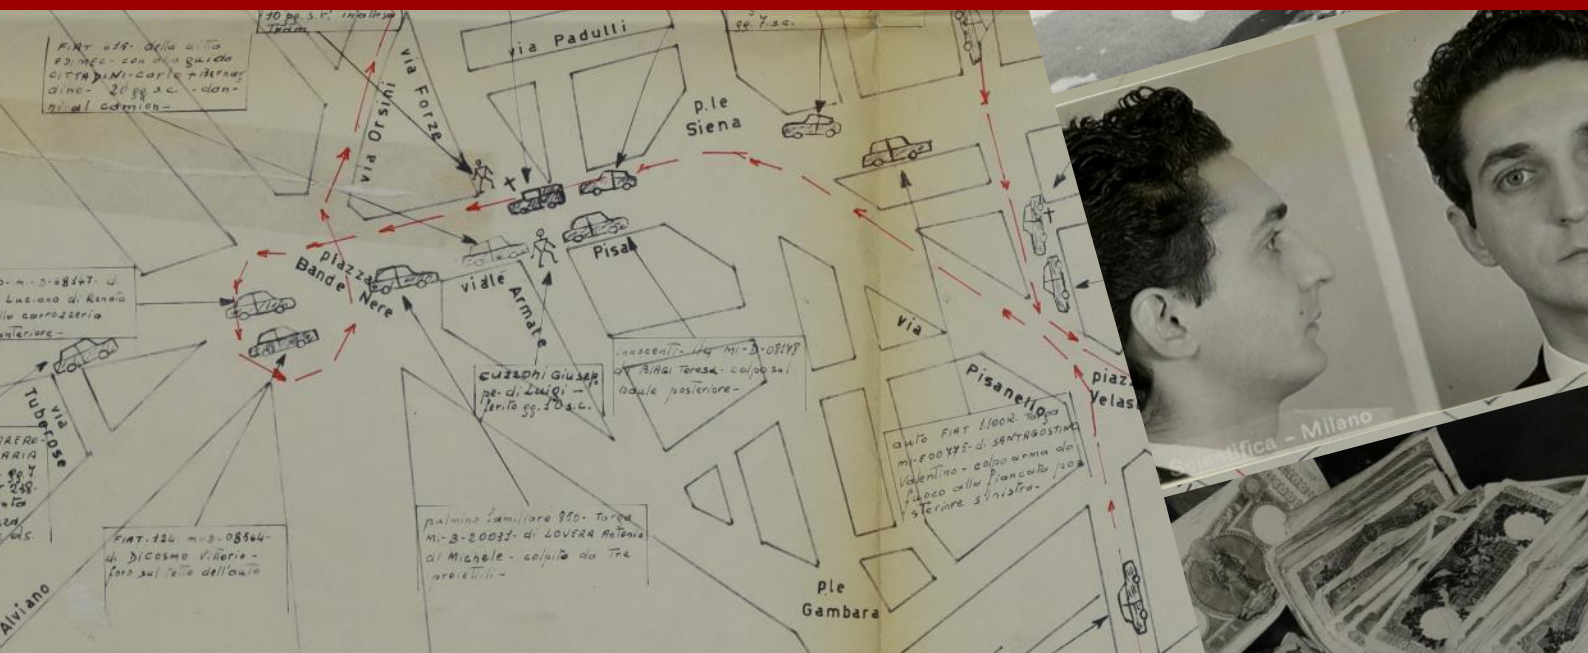 10 pg. s.c.
Team
gg. 7. s.c.
FIAT 615 della ditta
con alla guida
CITTADINI Carlo + Bernar
dino - 20 gg s.c. - dan-
ni al camion -
via Padulli
via Forze
via Orsini
P.le
Siena
piazza
Bande Nere
viale
Armate
Pisa
via
Pisanello
piaz
Velas
Luciano di Renato
carrozzeria
anteriore -
via
Tuberose
Alviano
CUZZONI Giusep
pe - di Luigi -
ferito gg. 10 s.c.
innocenti - IM4 MI-D-08178
di BIAGI Teresa - colpo sul
baule posteriore -
auto FIAT 1100R Targa
MI-E00775 - di SANTAGOSTINO
Valentino - colpo arma da
fuoco alla fiancata pos
steriore sinistra -
FIAT - 124 MI-D-08564 -
di DICOSMO Vittorio -
foro sul tetto dell'auto
pulmino familiare 850 - Targa
MI-B-20037 - di LOVERA Antonio
di Michele - colpito da Tre
proiettili -
P.le
Gambara
Scientifica - Milano